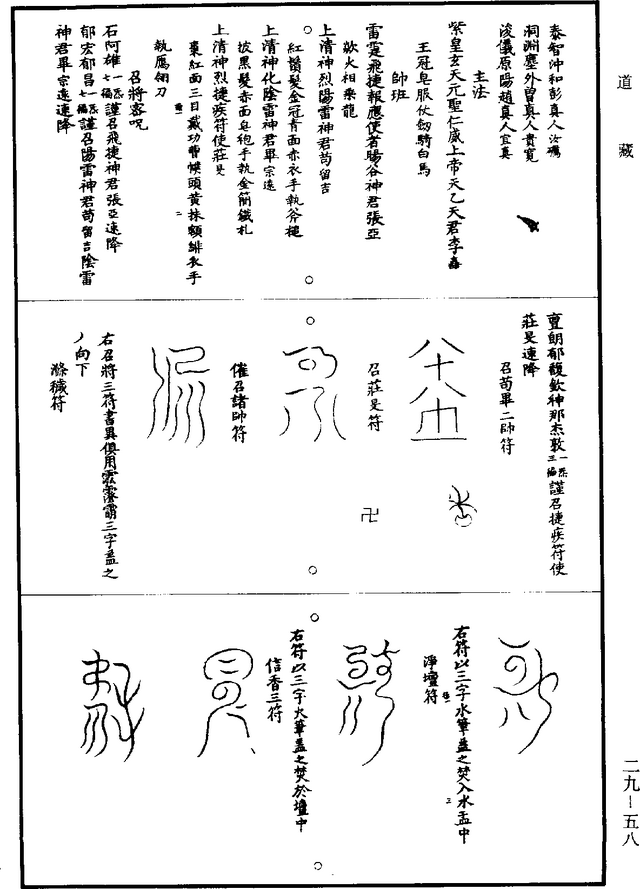 道藏
泰智沖和彭真人汝礪
洞淵塵外曾真人貴寬
浚儀原陽趙真人宜真
主法
紫皇玄天元聖仁威上帝天乙天君李
玉冠皂服仗劒騎白馬
帥班
雷霆飛捷報應使者暘谷神君張亞
歘火相乘龍
上清神烈陽雷神君苟留吉
紅鬚髮金冠青面赤衣手執斧槌
上清神化陰雷神君畢宗遠
披黑髮赤面皂袍手執金簡鐵札
上清神烈捷疾符使莊旻
棗紅面三目戴功曹幞頭黄抹額緋衣手
執鴈翎刀
召將密呪
石阿雄一炁七徧謹召飛捷神君張亞速降
郁宏郁昌一炁七徧謹召陽雷神君苟留吉陰雷
神君畢宗遠速降
亶朗郁馥歘神那杰敦一炁三徧謹召捷疾符使
莊旻速降
召苟畢二帥符
召莊旻符
卍
催召諸帥符
右召將三符書畢俱用三字蓋之
丿向下
滌穢符
右符以三字水筆蓋之焚入水盂中
淨壇符
右符以三字火筆蓋之焚於壇中
信香三符
二九-五八